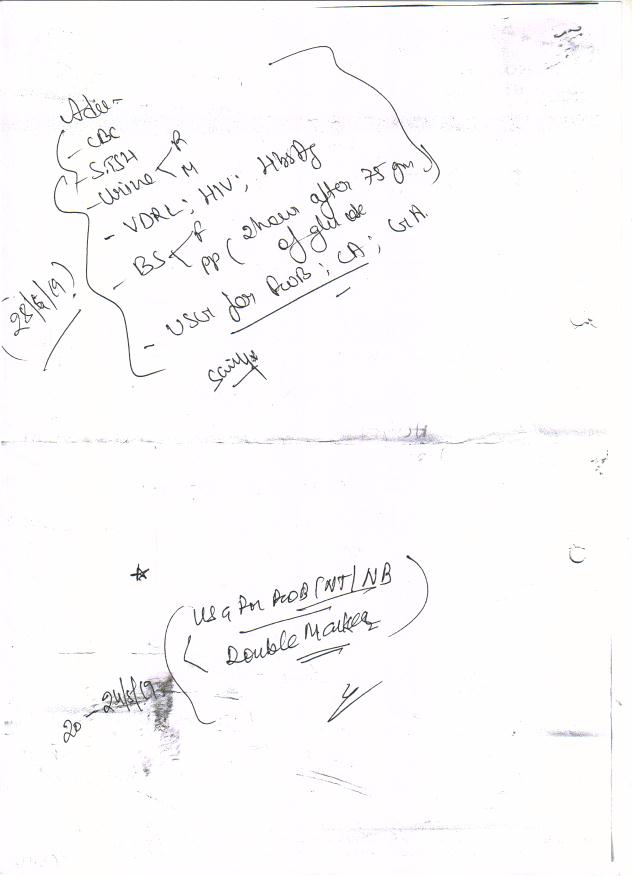 Adv:-
- CBC
- S.TSH
- Urine < R
M
- VDRL; HIV; HbsAg
- BS < F
PP (2 hour after 75 gm
of glucose)
- USG for FWB; CA; GA
(28/4/19)
USG For FWB/NT/NB
Double Marker
20 - 24/5/19